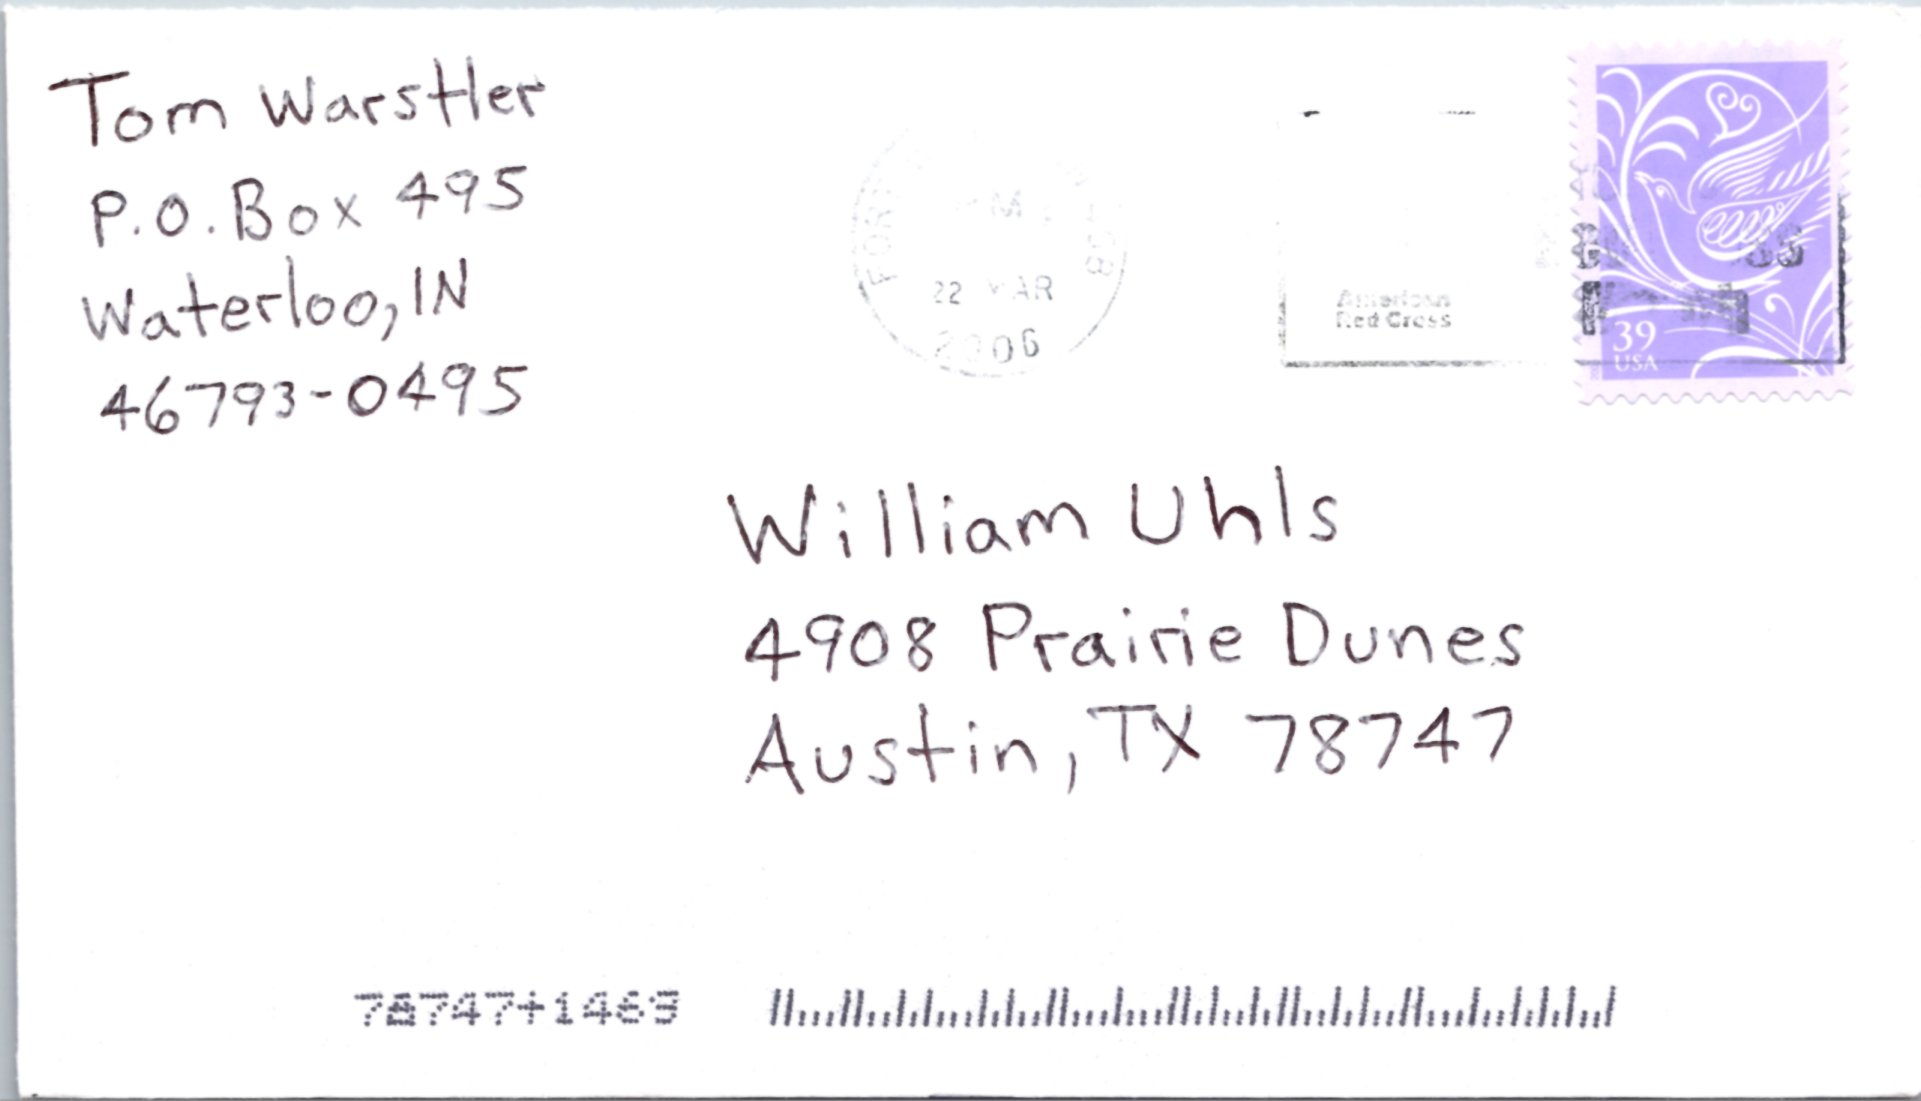 Tom Warstler
P.O. Box 495
Waterloo, IN
46793-0495
22 MAR
2006
American
Red Cross
39
USA
William Uhls
4908 Prairie Dunes
Austin, TX 78747
78747+1469